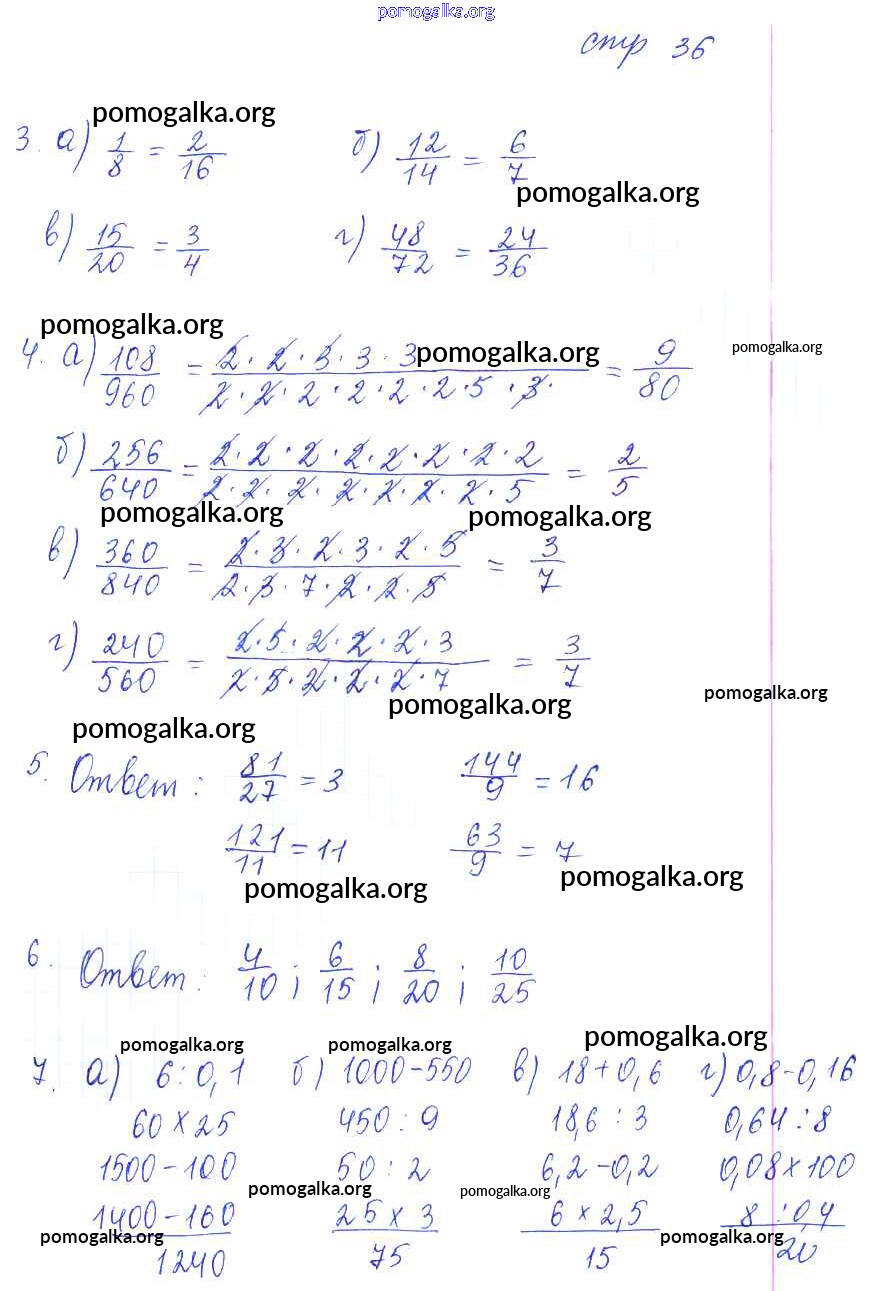 pomogalka.org
стр 36
pomogalka.org
3. а) 1/8 = 2/16 б) 12/14 = 6/7
pomogalka.org
в) 15/20 = 3/4 г) 48/72 = 24/36
pomogalka.org
4. а) 108/960 = 2·2·3·3·3/2·2·2·2·2·2·5·3· = 9/80
pomogalka.org pomogalka.org
б) 256/640 = 2·2·2·2·2·2·2·2/2·2·2·2·2·2·2·5 = 2/5
pomogalka.org pomogalka.org
в) 360/840 = 2·3·2·3·2·5/2·3·7·2·2·5 = 3/7
г) 240/560 = 2·5·2·2·2·3/2·5·2·2·2·7 = 3/7
pomogalka.org pomogalka.org
pomogalka.org
5. Ответ: 81/27 = 3 144/9 = 16
121/11 = 11 63/9 = 7
pomogalka.org pomogalka.org
6. Ответ: 4/10 ; 6/15 ; 8/20 ; 10/25
pomogalka.org pomogalka.org pomogalka.org
7. а) 6:0,1 б) 1000-550 в) 18+0,6 г) 0,8-0,16
60×25 450:9 18,6:3 0,64:8
1500-100 50:2 6,2-0,2 0,08×100
pomogalka.org pomogalka.org
1400-160 25×3 6×2,5 8:0,4
pomogalka.org pomogalka.org
1240 75 15 20